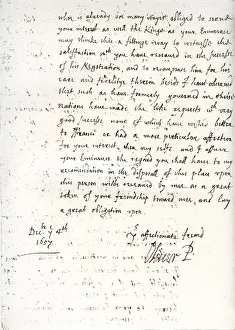 who is already so many wayes obliged to
your interest as well the Kings as your Eminence
may thinke this a fitting way to witnesse the
satisfaction wch you have received in the successe
of his Negotiation, and to recompence him for his
care and fidelitye therein besids I have observed
that such as have formerly govern'd in
have made the like requests wth very
good successe none of which have wished better
to France or had a more particular affection
for your interest, then my selfe and I assure
your Eminence the regard you shall have to my
recomendation in the disposall of this place upon
this person wilbe received by mee as a great
token of your friendship toward mee, and lay
a great obligation upon.
Yr affectionate friend
Dec. ye 4th
1657
Oliver P.